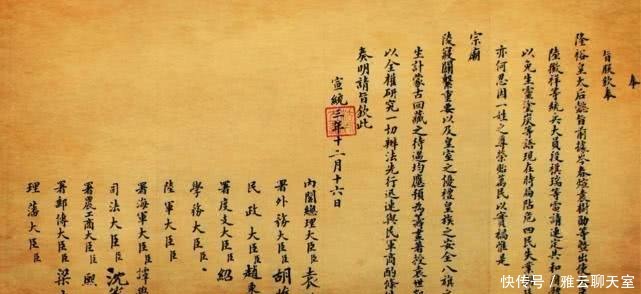 奉
旨朕欽奉
隆裕皇太后懿旨前據岑春煊袁樹勛等暨出使
陸徵祥等統兵大員段祺瑞等電請速定共和
以免生靈塗炭等語現在時局阽危四民失業
亦何忍因一姓之尊榮貽萬民以實禍惟是
宗廟
陵寢關繫重要以及皇室之優禮皇族之安全八旗之
生計蒙古回藏之待遇均應預為籌畫著授袁世
以全權研究一切辦法先行迅速與民軍商酌條
奏明請旨欽此
宣統三年十二月十六日
內閣總理大臣臣袁
署外務大臣臣胡
民政大臣臣趙秉
署度支大臣臣紹
學務大臣臣
陸軍大臣臣
署海軍大臣臣譚學
司法大臣臣沈
署農工商大臣臣熙
署郵傳大臣臣梁
理藩大臣臣
快传号/雅云聊天室